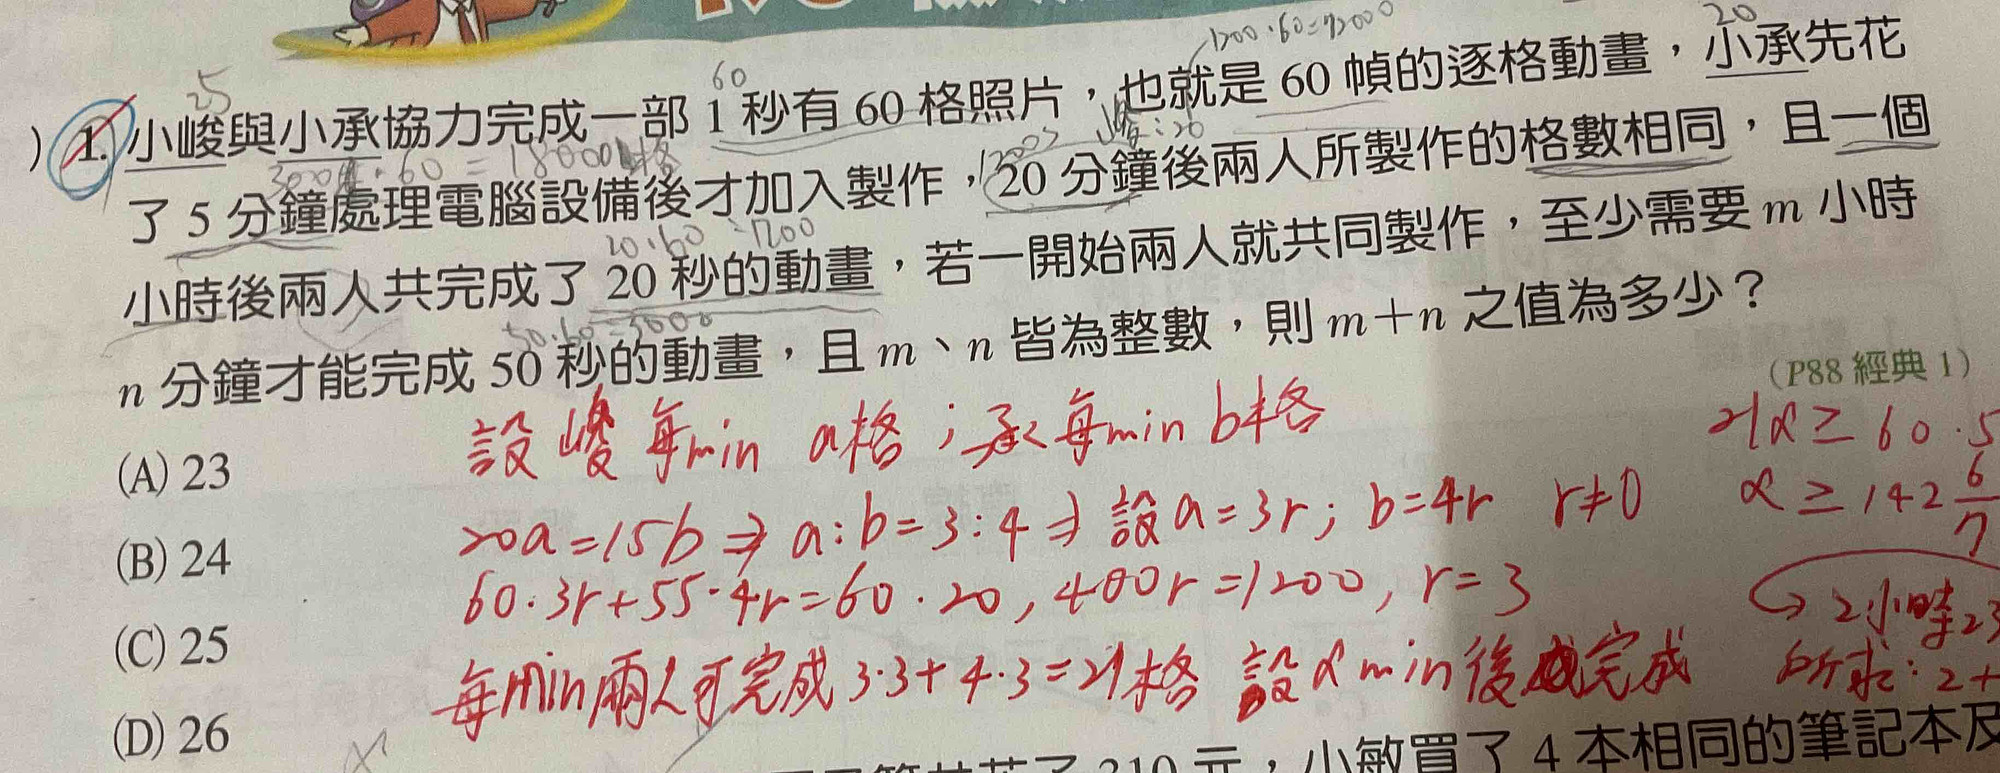 1200·60=72000
25
60
20
) 1. 小峻與小承協力完成一部 1 秒有 60 格照片，也就是 60 幀的逐格動畫，小承先花
300·60=18000格
1200
了 5 分鐘處理電腦設備後才加入製作，20 分鐘後兩人所製作的格數相同，且一個
20·60=1200
小時後兩人共完成了 20 秒的動畫，若一開始兩人就共同製作，至少需要 m 小時
50·60=3000
n 分鐘才能完成 50 秒的動畫，且 m、n 皆為整數，則 m＋n 之值為多少？
(P88 經典 1)
(A) 23
(B) 24
(C) 25
(D) 26
設峻每min a格；承每min b格
20a=15b⇒a:b=3:4⇒設a=3r; b=4r r≠0
60·3r+55·4r=60·20, 400r=1200, r=3
每min兩人可完成3·3+4·3=21格 設αmin後完成
21α≥60·5
α≥142 6/7
→2小時23
所求:2+
210 元，小敏買了 4 本相同的筆記本及